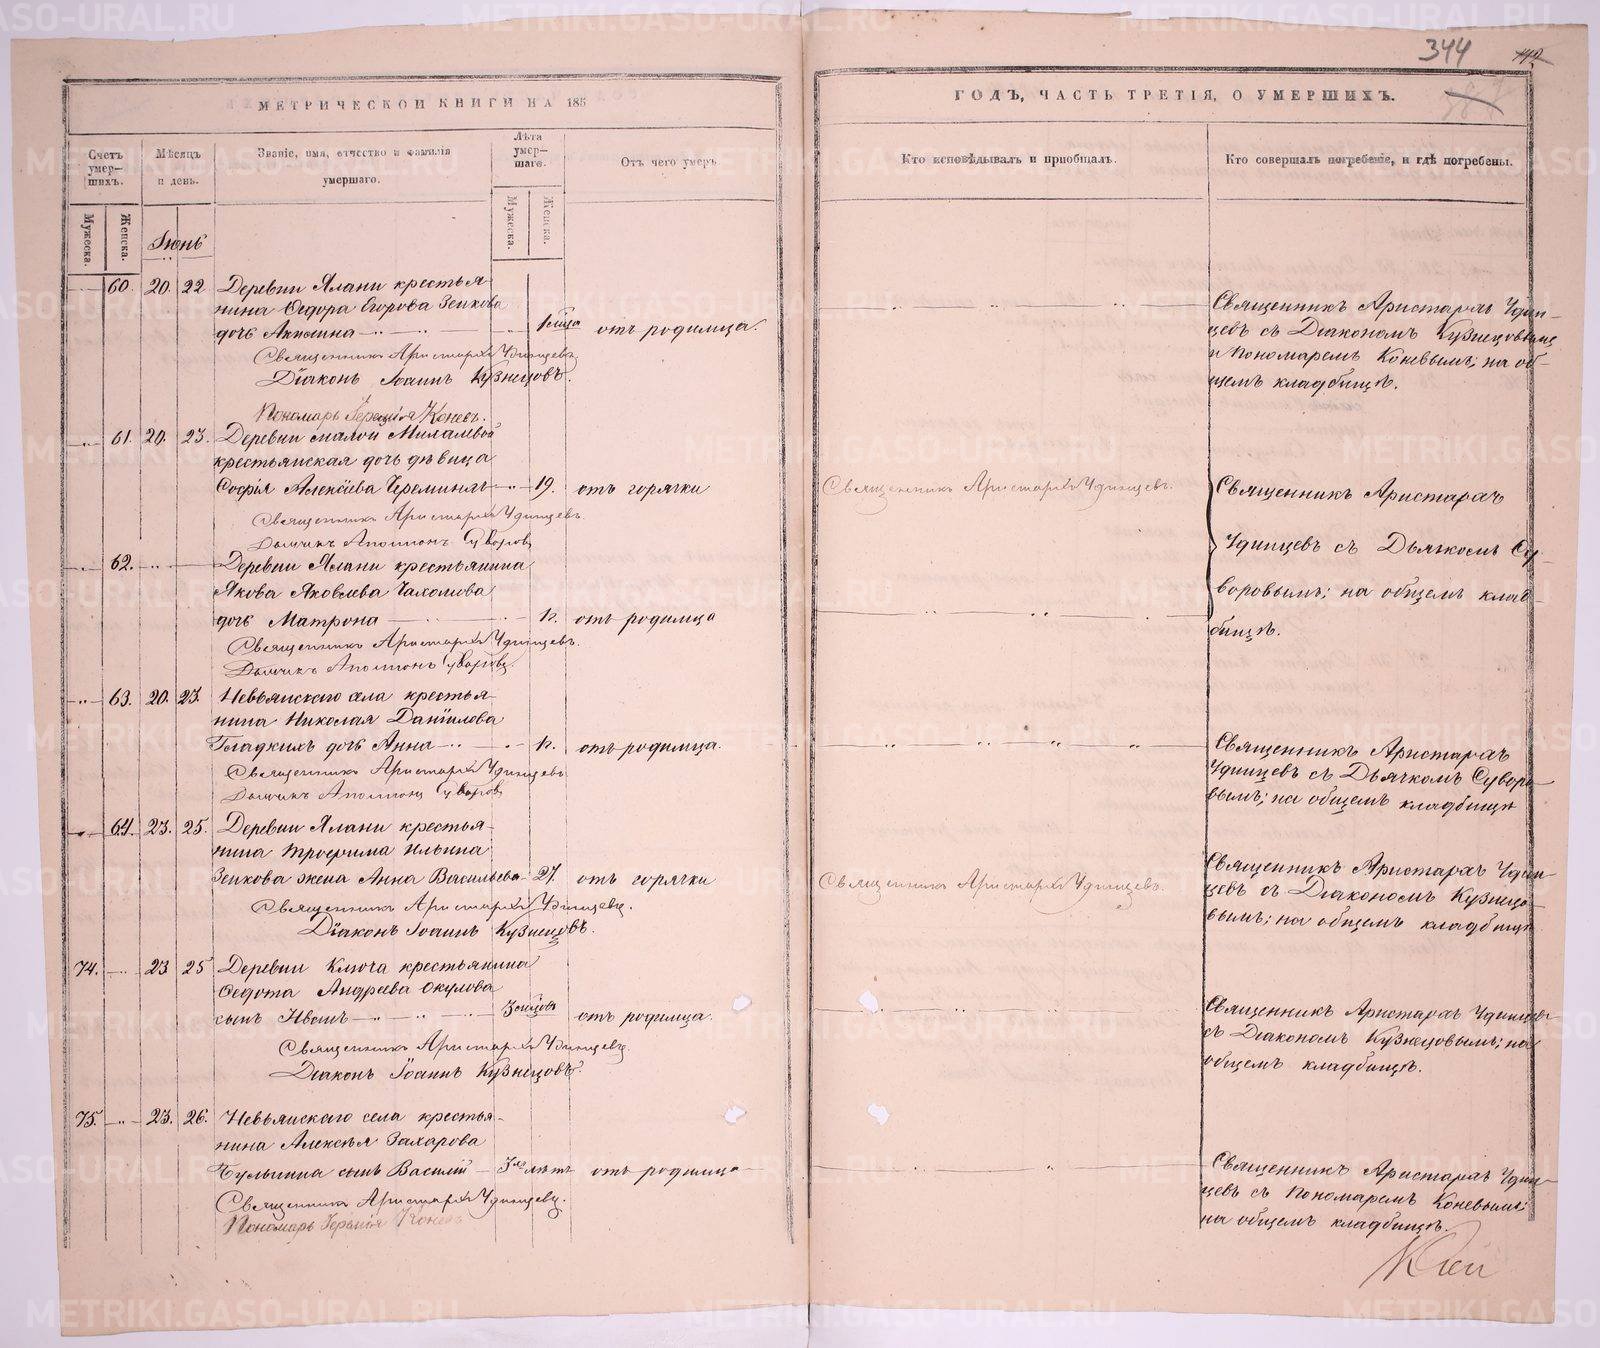 344
МЕТРИЧЕСКОЙ КНИГИ НА 185
ГОДЪ, ЧАСТЬ ТРЕТІЯ, О УМЕРШИХЪ.
Счетъ умер-
шихъ.
Мѣсяцъ
и день.
Званіе, имя, отчество и фамилія
умершаго.
Лѣта
умер-
шаго.
Отъ чего умеръ
Кто исповѣдывалъ и пріобщалъ.
Кто совершалъ погребеніе, и гдѣ погребены.
Мужеска.
Женска.
Мужеска.
Женска.
Іюнь
60. 20. 22 Деревни Ялани крестья-
нина Ѳедора Егорова Зенкова
дочь Акилина отъ родимца.
Священникъ Аристархъ Удинцевъ
Діаконъ Іоаннъ Кузнецовъ.
Пономарь Іеремія Коневъ.
Священникъ Аристархъ Удин-
цевъ съ Діакономъ Кузнецовымъ
и Пономаремъ Коневымъ; на об-
щемъ кладбищѣ.
61. 20. 23. Деревни малой
крестьянская дочь дѣвица
Софія Алексіева 19. отъ горячки
Священникъ Аристархъ Удинцевъ.
Священникъ Аристархъ Удинцевъ.
Дьячикъ Аполлонъ Суворовъ
Священникъ Аристархъ
Удинцевъ съ Дьячкомъ Су-
воровымъ; на общемъ клад-
бищѣ.
62. Деревни Ялани крестьянина
Якова Яковлева
дочь Матрона н. отъ родимца
Священникъ Аристархъ Удинцевъ.
Дьячикъ Аполлонъ Суворовъ.
63. 20. 23. Невьянскаго села крестья-
нина Николая Даніилова
Гладкихъ дочь Анна н. отъ родимца.
Священникъ Аристархъ Удинцевъ
Дьячикъ Аполлонъ Суворовъ
Священникъ Аристархъ
Удинцевъ съ Дьячкомъ Суворо-
вымъ; на общемъ кладбищѣ
64. 23. 25. Деревни Ялани крестья-
нина Трофима Ильина
Зенкова жена Анна Васильева 27. отъ горячки
Священникъ Аристархъ Удинцевъ.
Священникъ Аристархъ Удинцевъ.
Діаконъ Іоаннъ Кузнецовъ.
Священникъ Аристархъ Удин-
цевъ съ Діакономъ Кузнецо-
вымъ; на общемъ кладбищѣ
74. 23 25 Деревни Ключа крестьянина
Ѳедота Андреева Окулова
сынъ Иванъ отъ родимца.
Священникъ Аристархъ Удинцевъ.
Діаконъ Іоаннъ Кузнецовъ.
Священникъ Аристархъ Удинцевъ
съ Діакономъ Кузнецовымъ; на
общемъ кладбищѣ.
75. 23. 26. Невьянскаго села крестья-
нина Алексѣя Захарова
сынъ Василій отъ родимца
Священникъ Аристархъ Удинцевъ.
Пономарь Іеремія Коневъ
Священникъ Аристархъ Удин-
цевъ съ Пономаремъ Коневымъ;
на общемъ кладбищѣ.
METRIKI.GASO-URAL.RU